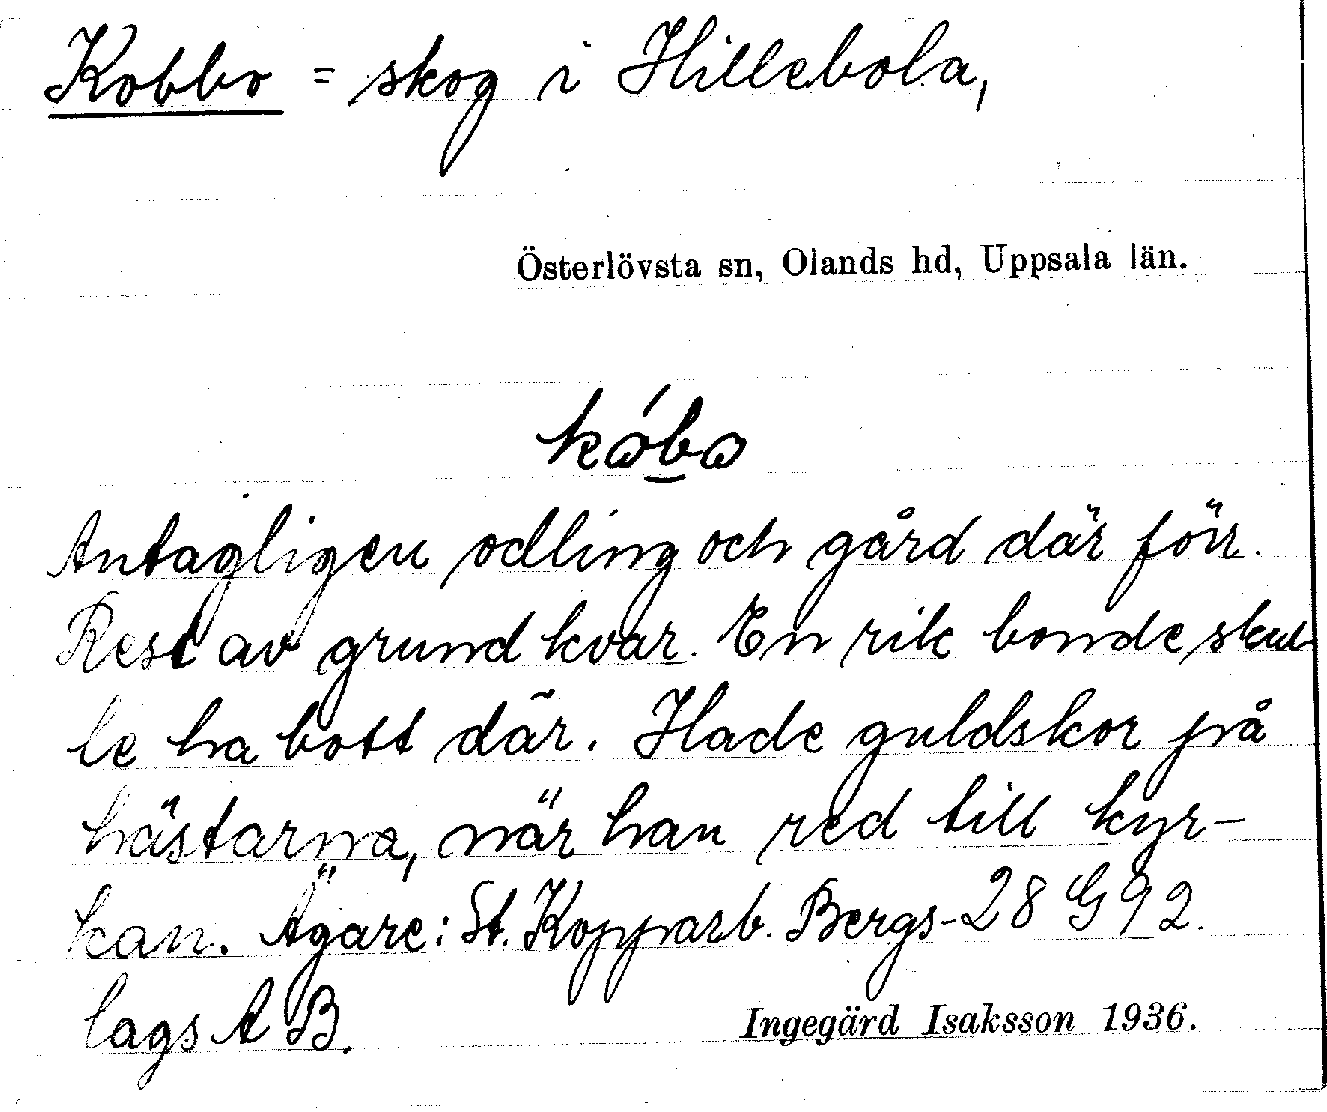 Kobbo = skog i Hillebola,
Österlövsta sn, Olands hd, Uppsala län.
kób̲o
Antagligen odling och gård där förr.
Rest av grund kvar. En rik bonde skul-
le ha bott där. Hade guldskor på
hästarna, när han red till kyr-
kan. Ägare: St. Kopparb. Bergs- 28 G 92.
lags AB.
Ingegärd Isaksson 1936.